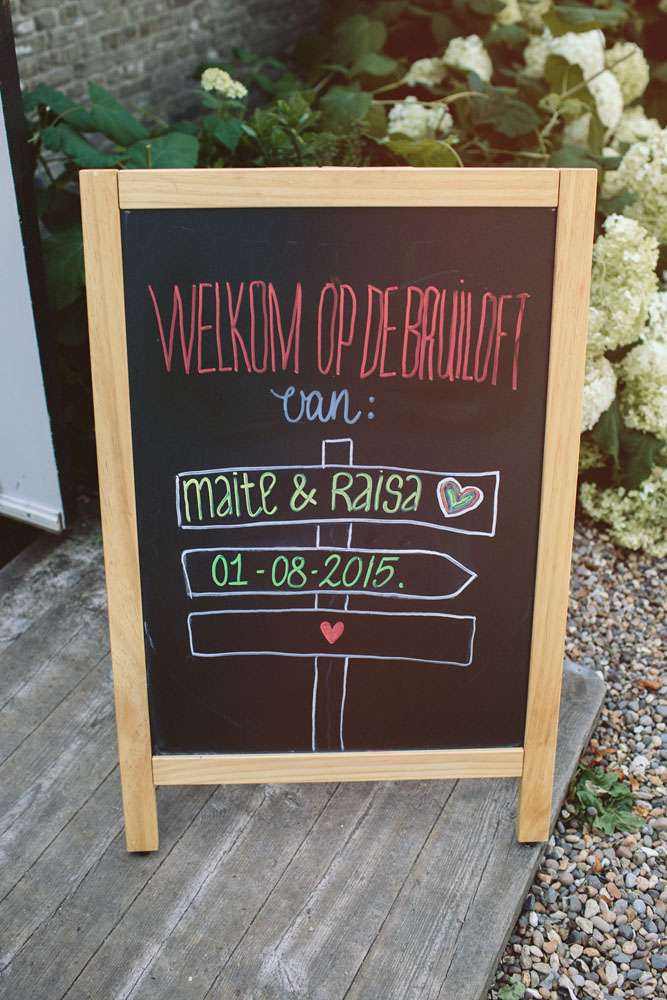 WELKOM OP DE BRUILOFT
van:
maite & Raisa
01-08-2015.